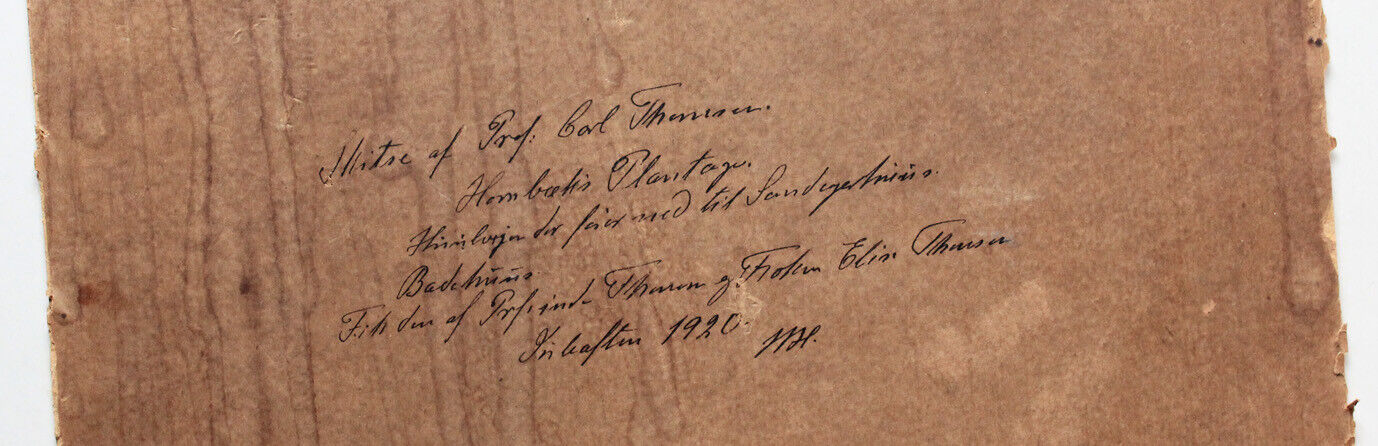 Skitse af Prof. Carl Thomsen.
Hornbæks Plantage.
Hiulvejen der fører ned til Sandegaards
Badehuus
Fik den af Profsinde Thomsen og Frøken Elise Thomsen
Juleaften 1920. MH.